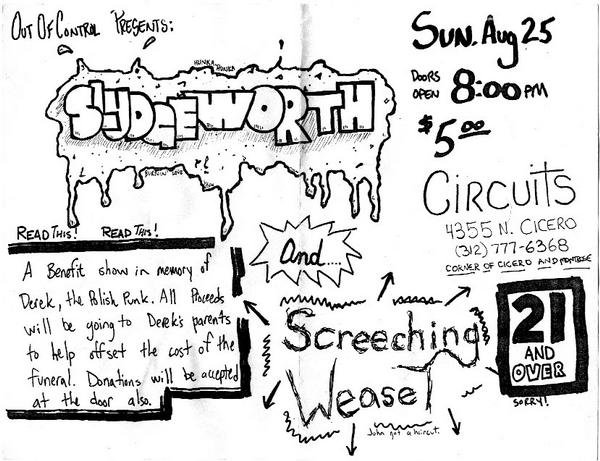 Out Of Control Presents:
HUNKA HUNKA
SLUDGEWORTH
BURNIN' LOVE
Sun. Aug 25
DOORS OPEN 8:00 PM
$5.00
CIRCUITS
4355 N. CICERO
(312) 777-6368
CORNER OF CICERO AND MONTROSE
READ THIS! READ THIS!
A Benefit show in memory of
Derek, the Polish Punk. All Proceeds
will be going to Derek's parents
to help offset the cost of the
funeral. Donations will be accepted
at the door also.
And....
Screeching
Weasel
John got a haircut.
21
AND
OVER
SORRY!